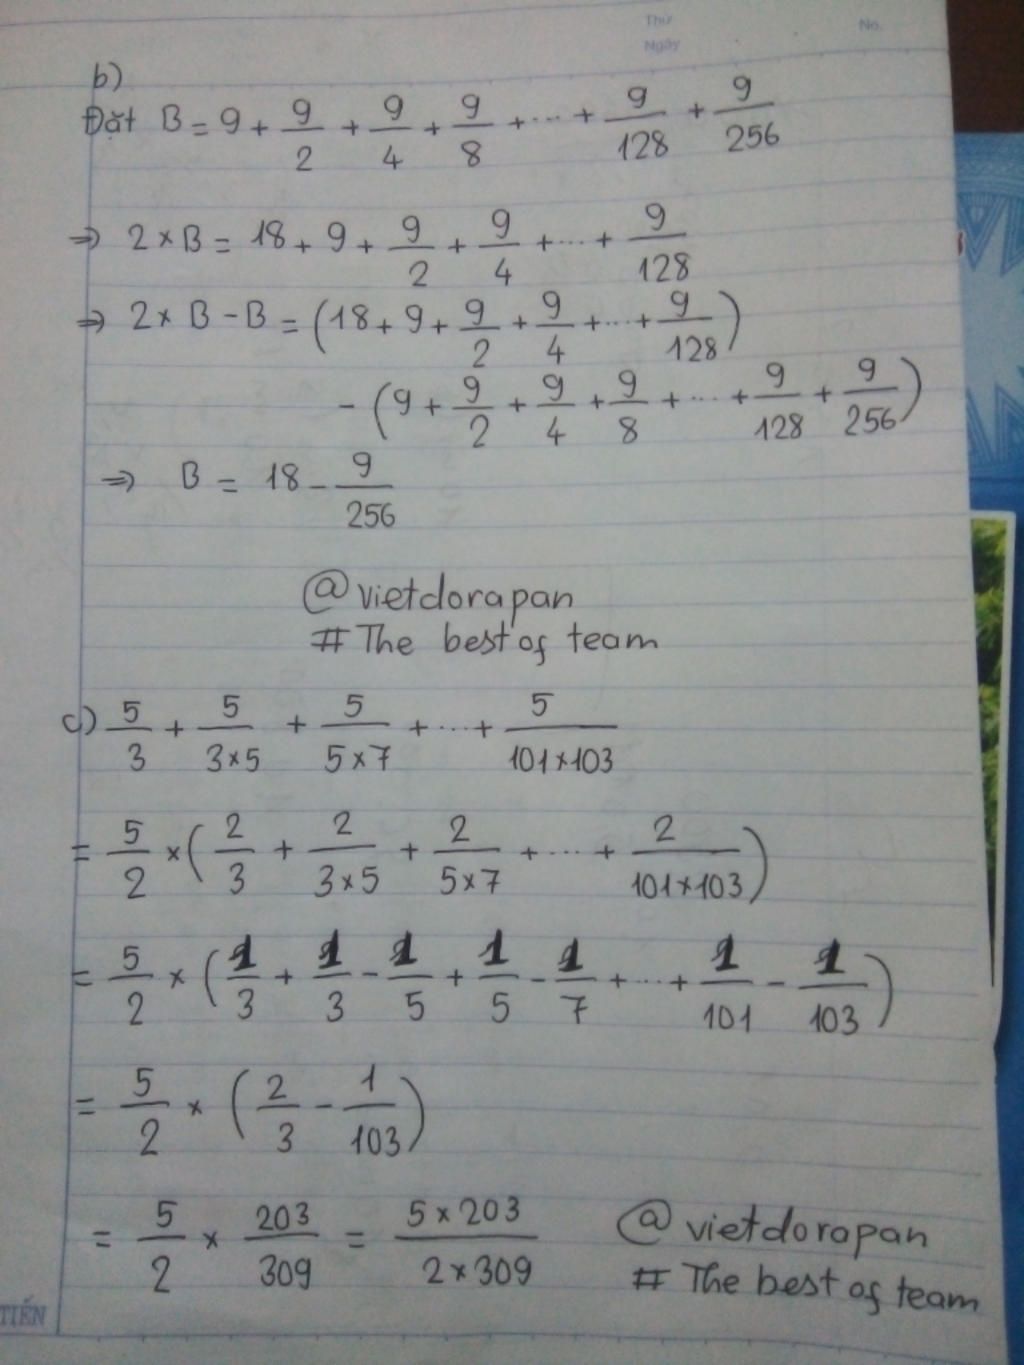 Thứ
No.
Ngày
b)
Đặt B = 9 + 9/2 + 9/4 + 9/8 + ... + 9/128 + 9/256
⇒ 2 × B = 18 + 9 + 9/2 + 9/4 + ... + 9/128
⇒ 2 × B - B = (18 + 9 + 9/2 + 9/4 + ... + 9/128)
- (9 + 9/2 + 9/4 + 9/8 + ... + 9/128 + 9/256)
⇒ B = 18 - 9/256
@vietdorapan
# The best of team
c) 5/3 + 5/(3×5) + 5/(5×7) + ... + 5/(101×103)
= 5/2 × (2/3 + 2/(3×5) + 2/(5×7) + ... + 2/(101×103))
= 5/2 × (1/3 + 1/3 - 1/5 + 1/5 - 1/7 + ... + 1/101 - 1/103)
= 5/2 × (2/3 - 1/103)
= 5/2 × 203/309 = (5×203)/(2×309)
@vietdorapan
# The best of team
TIẾN